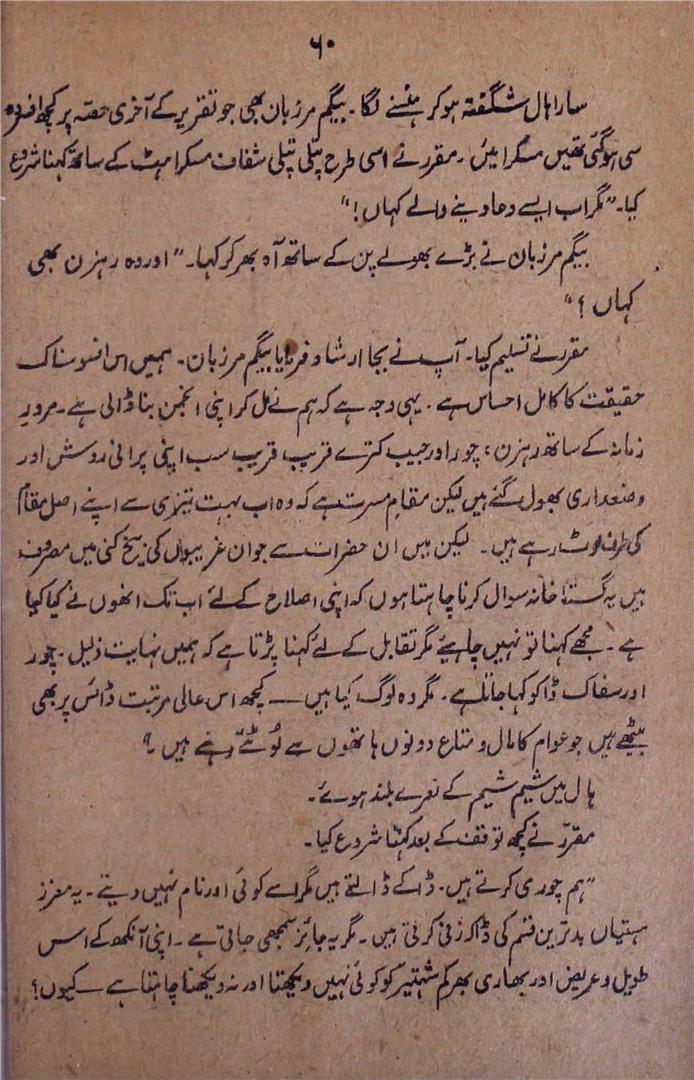 ۶۰
سارا ہال شگفتہ ہو کر ہنسنے لگا۔ بیگم مرزبان بھی جو تقریر کے آخری حصہ پر کچھ افسردہ
سی ہو گئی تھیں مسکرائیں۔ مقرر نے اسی طرح پتلی پتلی شفاف مسکراہٹ کے ساتھ کہنا شروع
کیا۔ "مگر اب ایسے دعا دینے والے کہاں!"
بیگم مرزبان نے بڑے بھولے پن کے ساتھ آہ بھر کر کہا۔ "اور وہ رہزن بھی
کہاں؟"
مقرر نے تسلیم کیا۔ آپ نے بجا ارشاد فرمایا بیگم مرزبان۔ ہمیں اس افسوسناک
حقیقت کا کامل احساس ہے۔ یہی وجہ ہے کہ ہم نے مل کر اپنی انجمن بنا ڈالی ہے۔ مرورِ
زمانہ کے ساتھ رہزن، چور اور جیب کترے قریب قریب سب اپنی پرانی روش اور
وضعداری بھول گئے ہیں لیکن مقامِ مسرت ہے کہ وہ اب بہت تیزی سے اپنے اصل مقام
کی طرف لوٹ رہے ہیں۔ لیکن میں ان حضرات سے جو ان غریبوں کی بیخ کنی میں مصروف
ہیں یہ گستاخانہ سوال کرنا چاہتا ہوں کہ اپنی اصلاح کے لئے اب تک انھوں نے کیا کیا
ہے۔ مجھے کہنا تو نہیں چاہیئے مگر تقابل کے لئے کہنا پڑتا ہے کہ ہمیں نہایت ذلیل۔ چور
اور سفاک ڈاکو کہا جاتا ہے۔ مگر وہ لوگ کیا ہیں — کچھ اس عالی مرتبت ڈائس پر بھی
بیٹھے ہیں جو عوام کا مال و متاع دونوں ہاتھوں سے لُوٹتے رہے ہیں۔؟
ہال میں شیم شیم کے نعرے بلند ہوئے۔
مقرّر نے کچھ توقف کے بعد کہنا شروع کیا۔
"ہم چوری کرتے ہیں۔ ڈاکے ڈالتے ہیں مگر اسے کوئی اور نام نہیں دیتے۔ یہ معزز
ہستیاں بدترین قسم کی ڈاکہ زنی کرتی ہیں۔ مگر یہ جائز سمجھی جاتی ہے۔ اپنی آنکھ کے اس
طویل و عریض اور بھاری بھرکم شہتیر کو کوئی نہیں دیکھتا اور نہ دیکھنا چاہتا ہے — کیوں؟